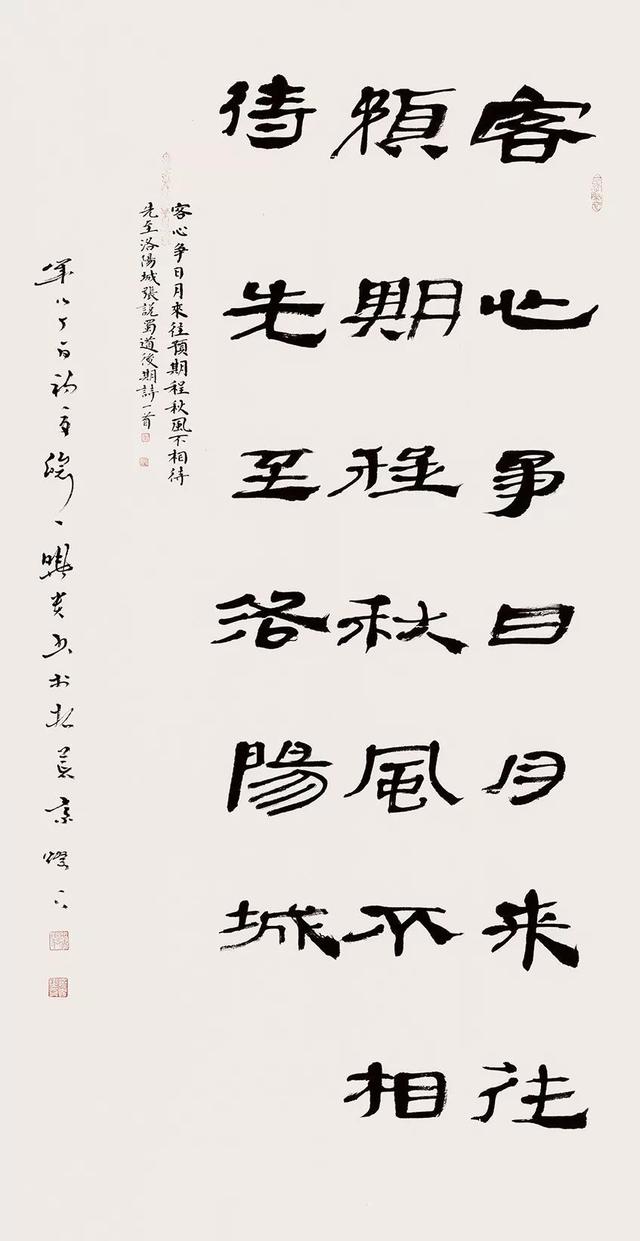 客心爭日月来往
預期程秋風不相
待先至洛陽城
客心爭日月來往預期程秋風不相待
先至洛陽城張説蜀道後期詩一首
丁酉初夏